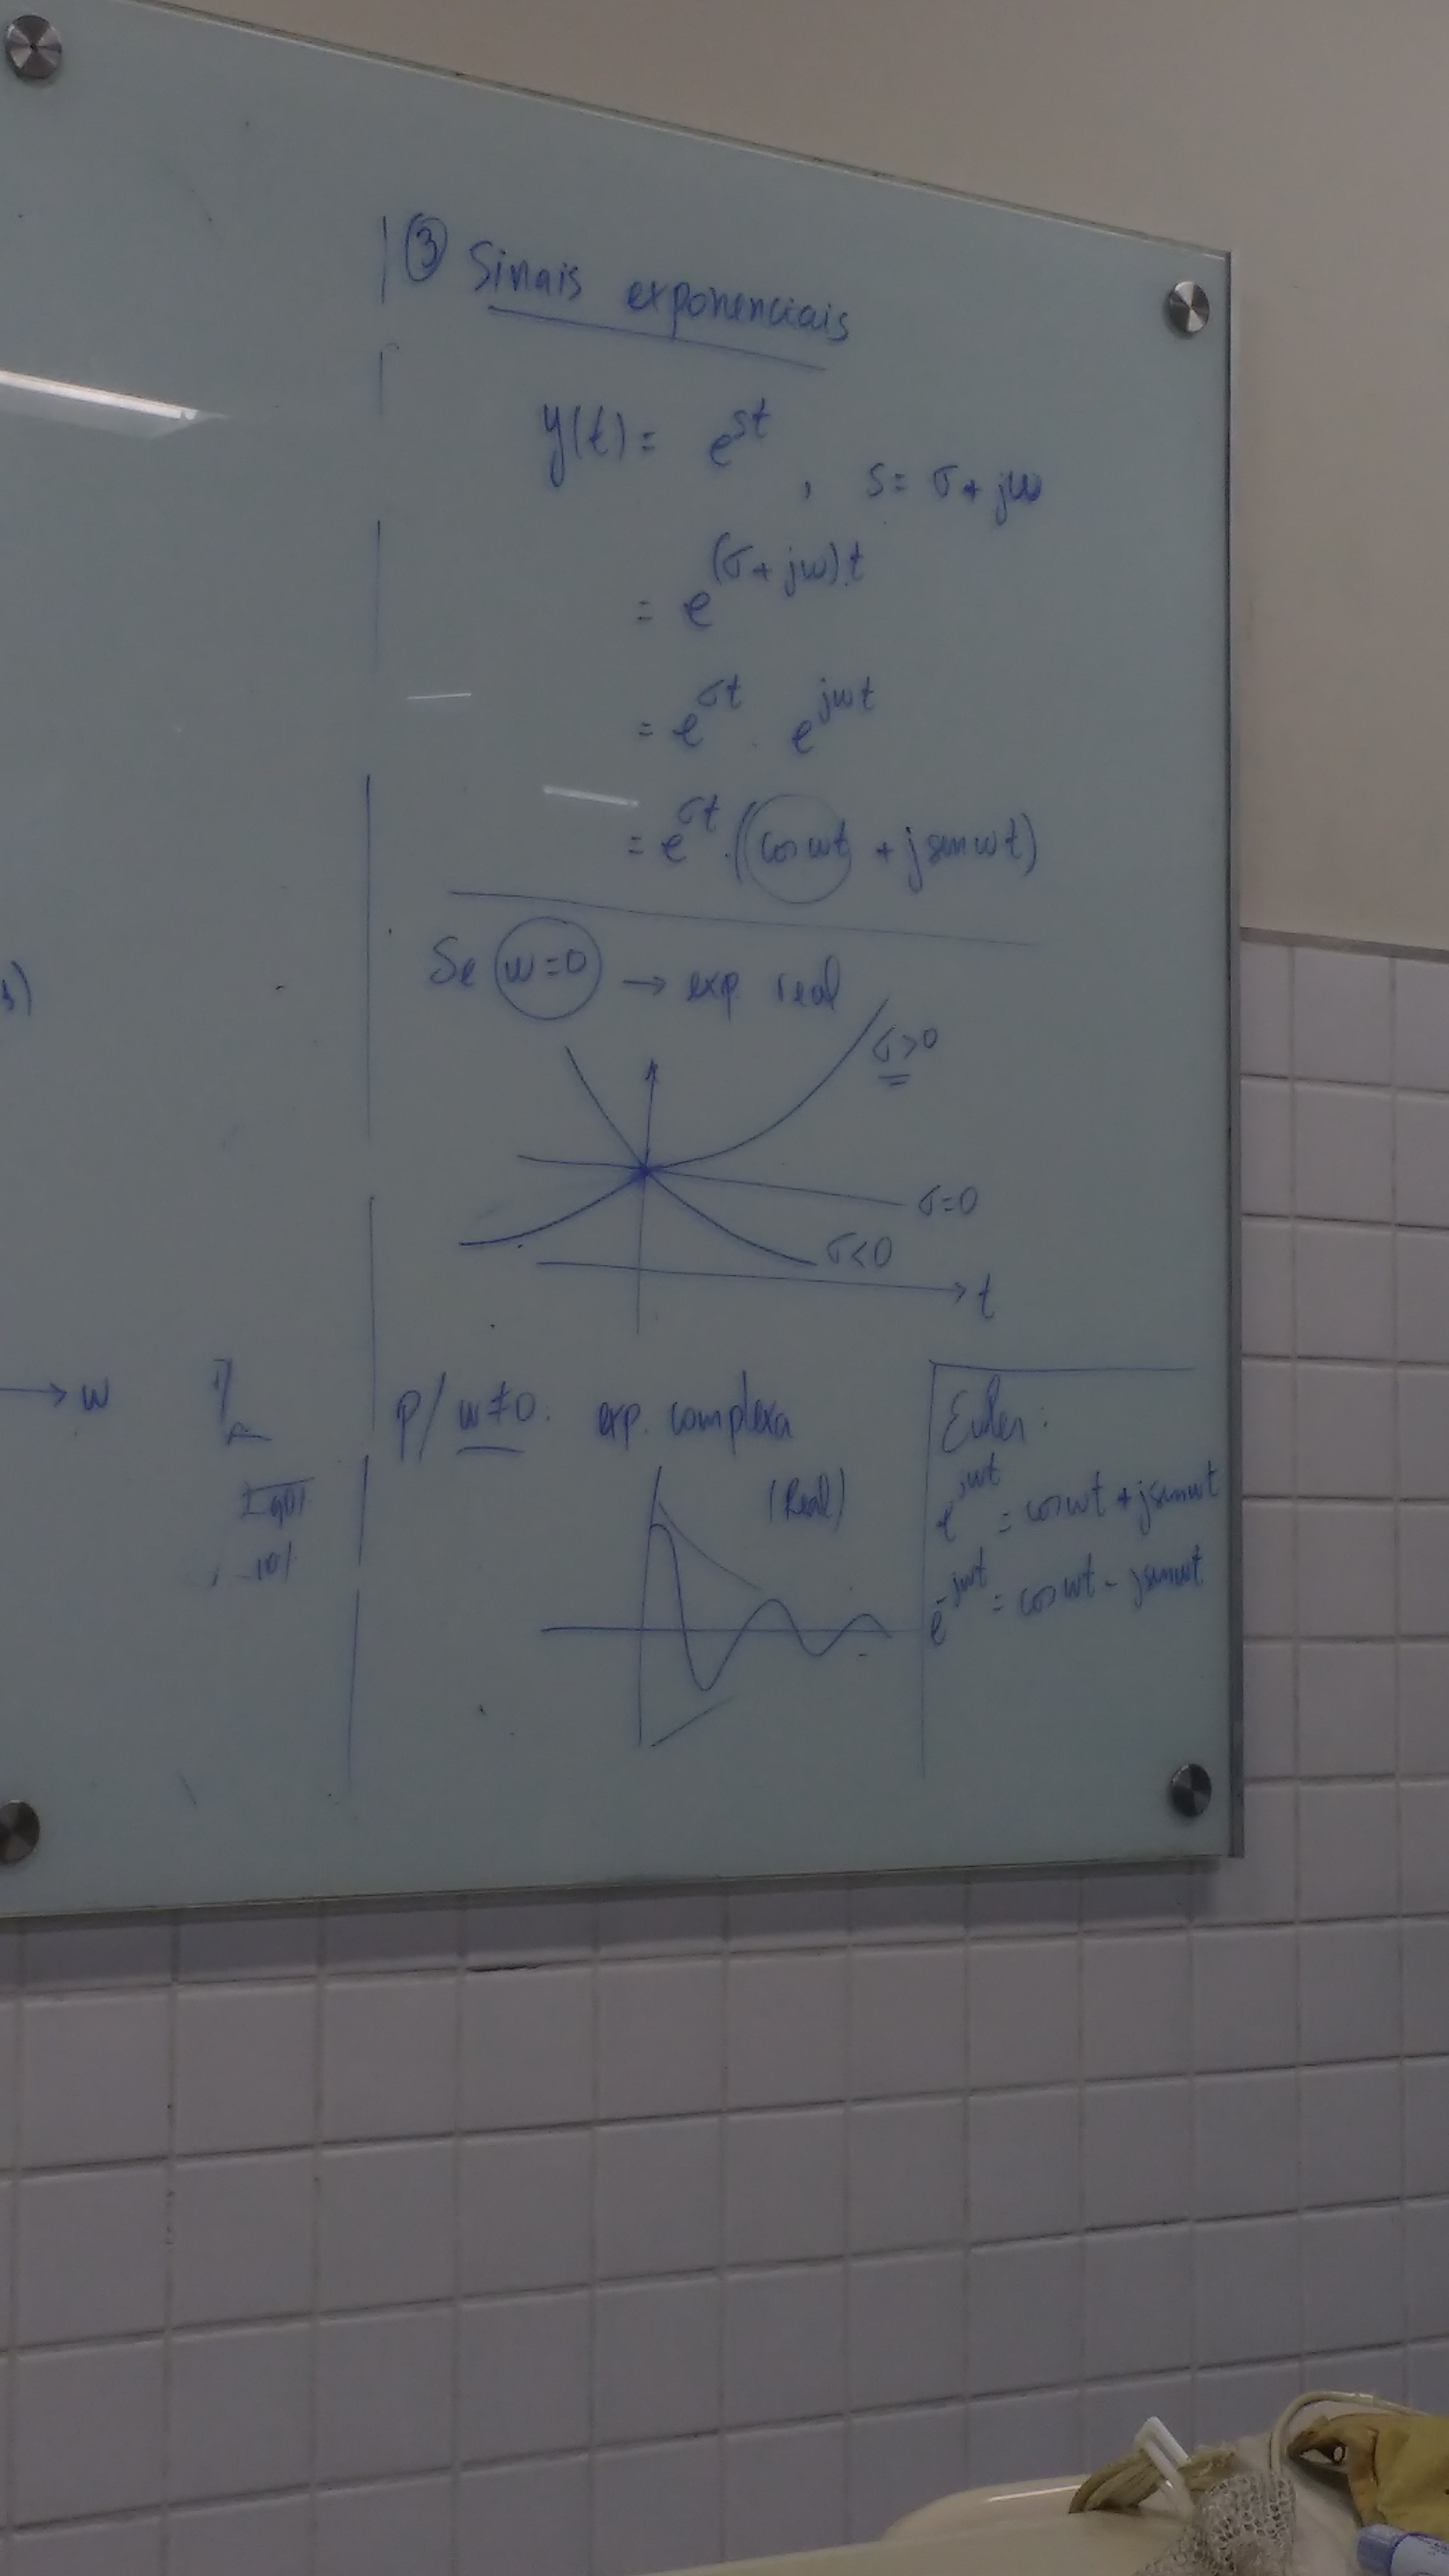 ③ Sinais exponenciais
y(t) = e^st , s = σ + jω
= e^(σ + jω).t
= e^σt . e^jωt
= e^σt . (cos ωt + j sen ωt)
Se ω=0 → exp. real
σ>0
σ=0
σ<0
t
→ ω
p/ ω≠0: exp. complexa
(Real)
Euler:
e^jωt = cos ωt + j sen ωt
e^-jωt = cos ωt - j sen ωt